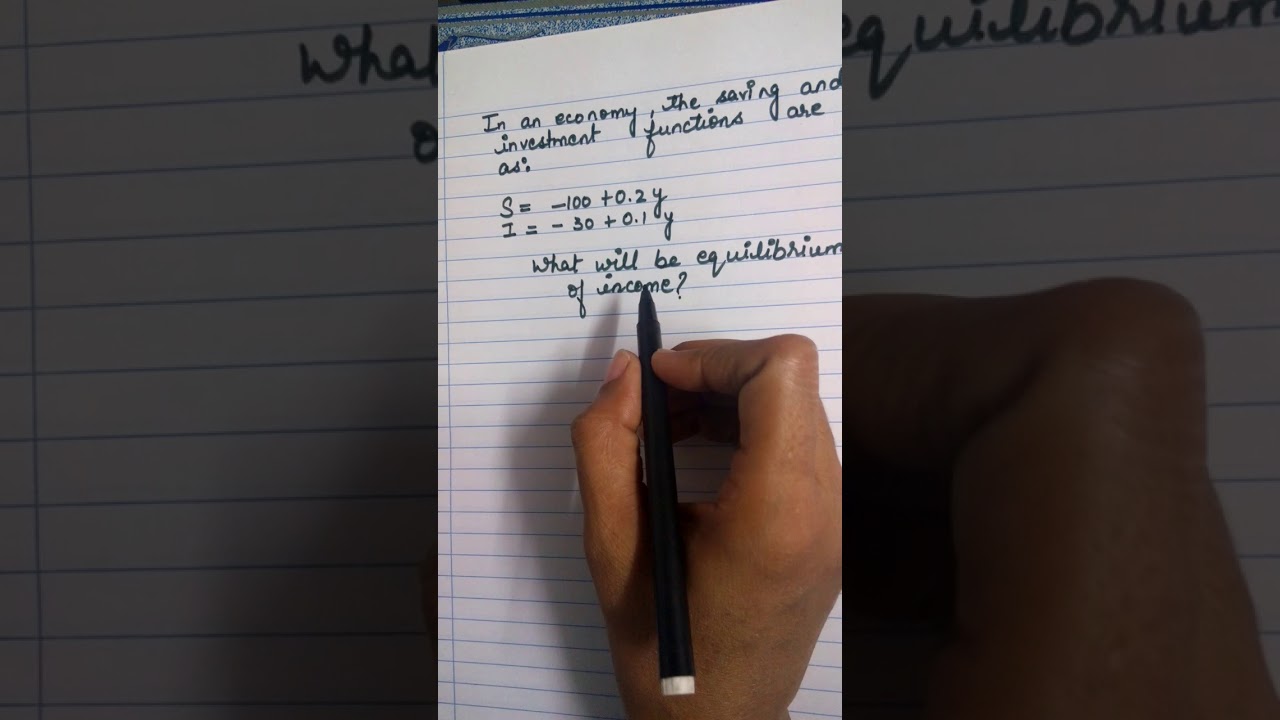 In an economy, the saving and
investment functions are
as:
S = -100 + 0.2 y
I = - 30 + 0.1 y
What will be equilibrium
of income?